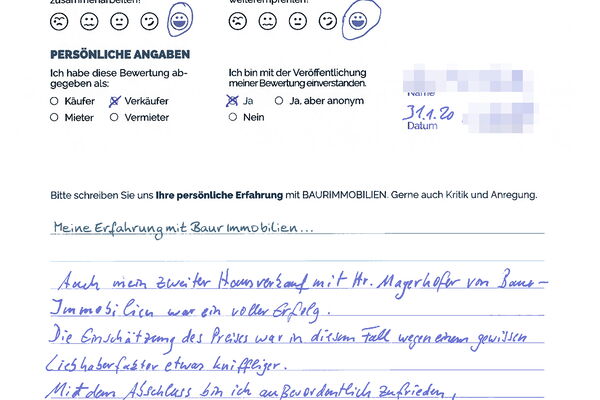 zusammenarbeiten? weiterempfehlen?
PERSÖNLICHE ANGABEN
Ich habe diese Bewertung ab-
gegeben als:
Käufer Verkäufer
Mieter Vermieter
Ich bin mit der Veröffentlichung
meiner Bewertung einverstanden.
Ja Ja, aber anonym
Nein
Name
31.1.20
Datum
Bitte schreiben Sie uns Ihre persönliche Erfahrung mit BAURIMMOBILIEN. Gerne auch Kritik und Anregung.
Meine Erfahrung mit Baur Immobilien...
Auch mein zweiter Hausverkauf mit Hr. Mayerhofer von Baur-
Immobilien war ein voller Erfolg.
Die Einschätzung des Preises war in diesem Fall wegen einem gewissen
Liebhaberfaktor etwas kniffliger.
Mit dem Abschluss bin ich außerordentlich zufrieden,